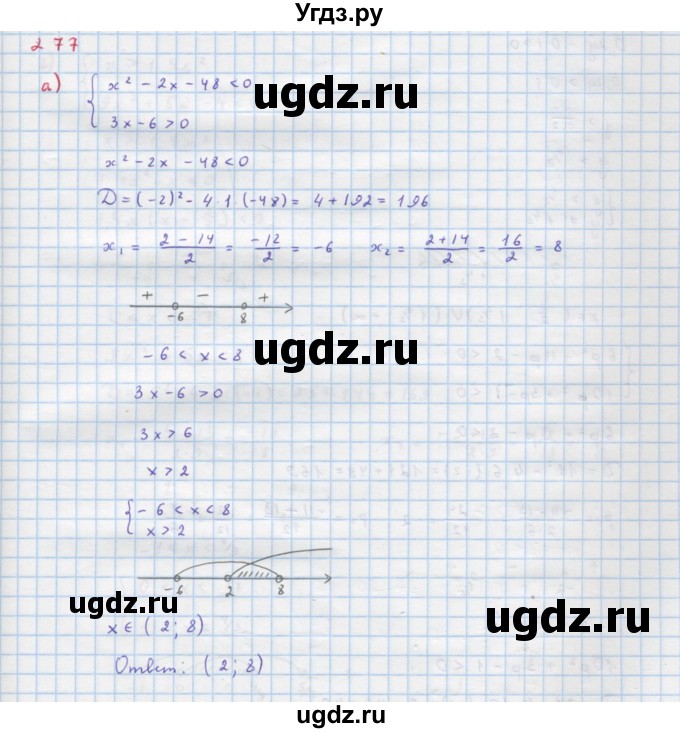 Угдз.ру
277
а) { x² - 2x - 48 < 0
3x - 6 > 0
ugdz.ru
x² - 2x - 48 < 0
D = (-2)² - 4·1·(-48) = 4 + 192 = 196
x₁ = (2 - 14)/2 = -12/2 = -6 x₂ = (2 + 14)/2 = 16/2 = 8
+ - +
-6 8
-6 < x < 8
ugdz.ru
ugdz.ru
3x - 6 > 0
3x > 6
x > 2
{ -6 < x < 8
x > 2
-6 2 8
ugdz.ru
ugdz.ru
x ∈ (2; 8)
Ответ: (2; 8)
ugdz.ru